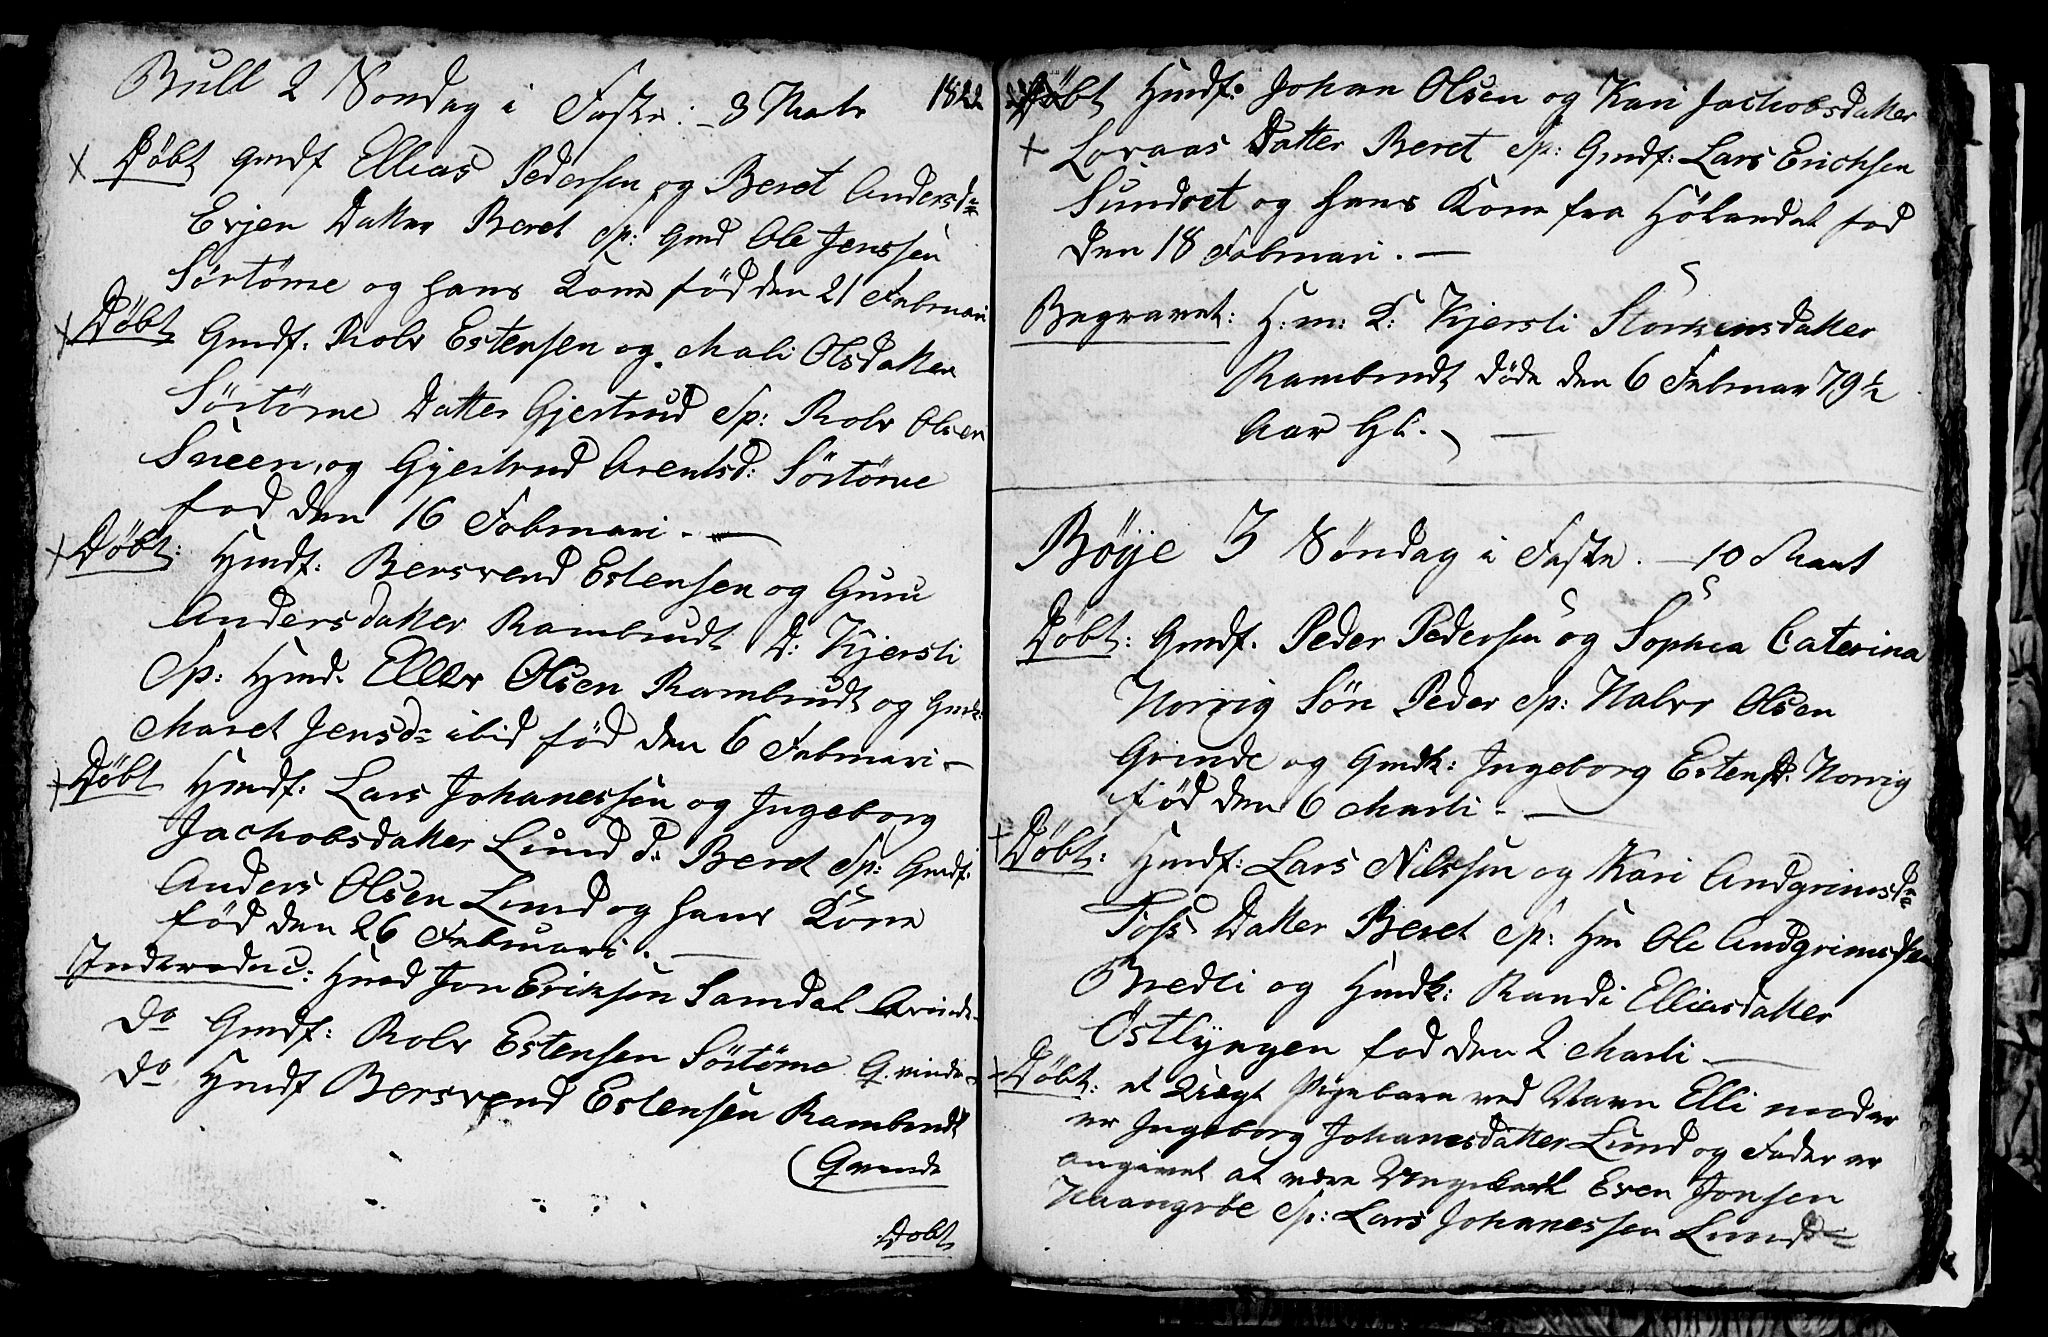 Bull 2 Søndag i Faste: 3 Marts 1822
Døbt gmdf Ellias Pedersen og Beret Andersd=
Evjen Datter Beret Sp: gmd Ole Jenssen
Sørtøme og hans Kone fød den 21 Februari
Døbt Gmdf. Rolv Estensen og Mali Olsdatter
Sørtøme Datter Gjertrud Sp: Rolv Olsen
Sneen, og Gjertrud Arentsd: Sørtøme
fød den 16 Februari. —
Døbt: Hmdf: Bersvend Estensen og Guru
Andersdatter Rambrudt D: Kjersti
Sp: Hmd. Ellev Olsen Rambrudt og Gmdk:
Maret Jensd= ibid fød den 6 Februari —
Døbt Hmdf: Lars Johanessen og Ingeborg
Jachobsdatter Lund d: Beret Sp: Gmdf:
Anders Olsen Lund og hans Kone
fød den 26 Februari. —
Indtroduc: Hmd Jon Eriksen Samdal Qvinde
do Gmdf: Rolv Estensen Sørtøme Qvinde
do Hmdf Bersvend Estensen Rambrudt
Qvinde
Døbt
Døbt Hmdf: Johan Olsen og Kari Jachobsdatter
Loraas Datter Beret Sp: Gmdf: Lars Erichsen
Sundset og hans Kone fra Hølandet fød
den 18 Februari. —
Begravet: H: m: K: Kjersti Storkensdatter
Rambrudt døde den 6 Februar 79 1/2
Aar Gl. —
Bøye 3 Søndag i Faste. — 10 Mart
Døbt: Gmdf. Peder Pedersen og Sophia Caterina
Norvig Søn Peder Sp: Halvr Olsen
Grinde og Gmdk: Ingeborg Estensd: Norvig
fød den 6 Marti. —
Døbt: Hmdf: Lars Nilssen og Kari Andgrimsd=
Foss Datter Beret Sp: Hm Ole Andgrimsen
Bredli og Hmdk: Randi Elliasdatter
Østlyngen fød den 2 Marti —
Døbt: et Uægt Pigebarn ved Navn Elli moder
er Ingeborg Johanesdatter Lund og Fader er
angivet at være Ungekarl Even Jonsen
Haangrøe Sp: Lars Johanessen Lund